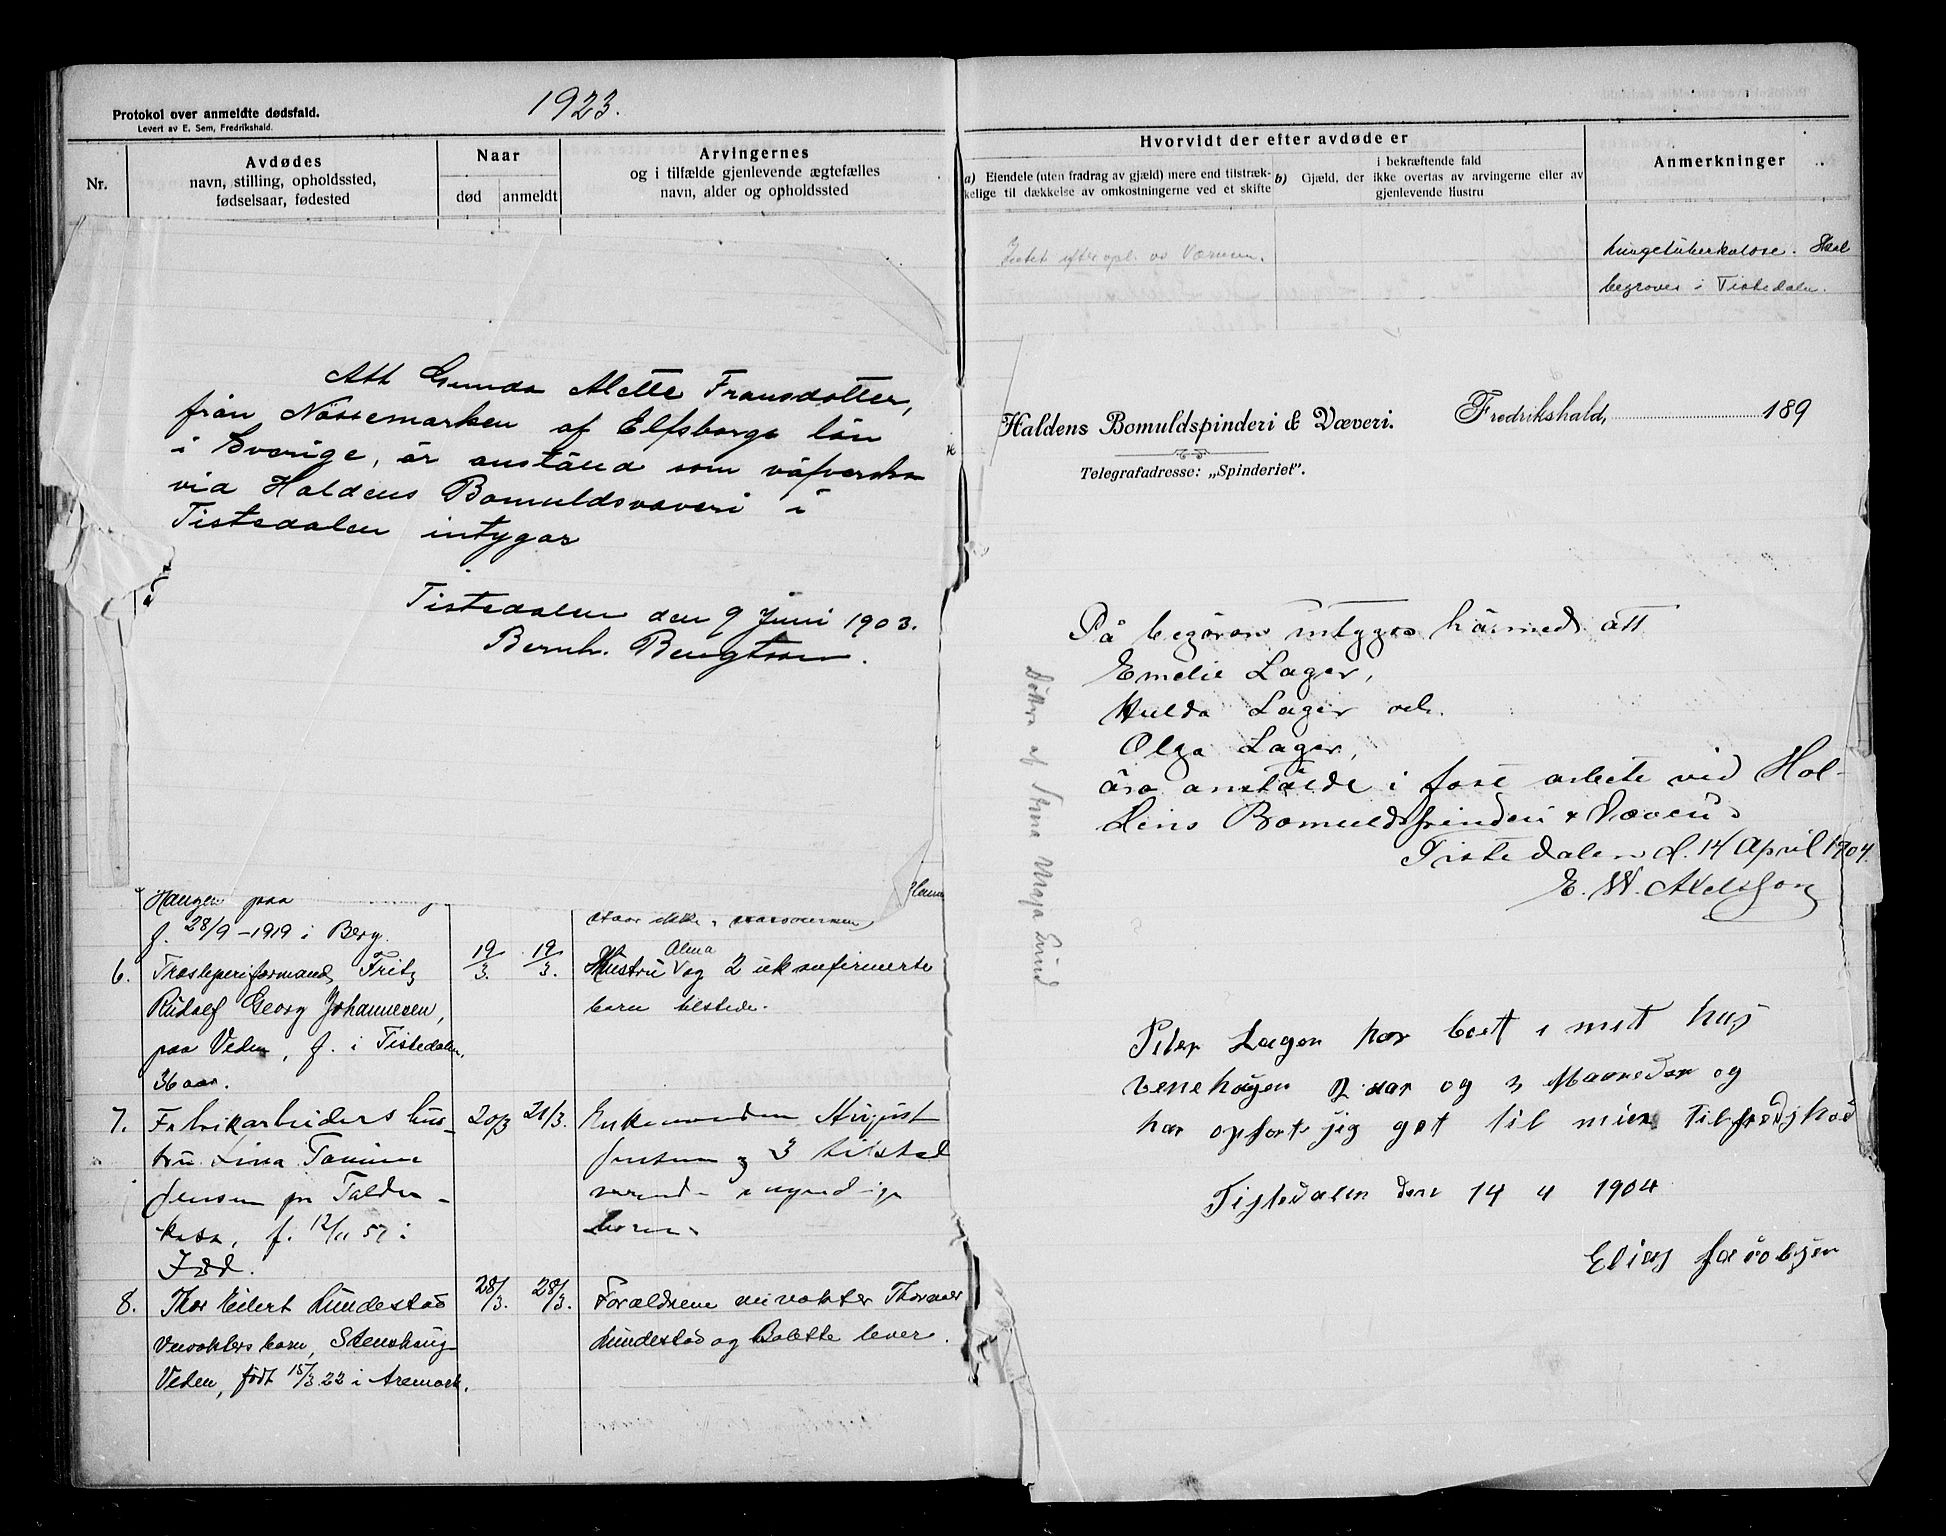 1923.
Protokol over anmeldte dødsfald.
Levert av E. Sem, Fredrikshald.
Nr.
Avdødes
navn, stilling, opholdssted,
fødselsaar, fødested
Naar
død
anmeldt
Arvingernes
og i tilfælde gjenlevende ægtefælles
navn, alder og opholdssted
Att Gunda Alette Fransdotter,
från Nössemarken af Elfsborgs län
i Sverige, är anstäld som väfverska
vid Haldens Bomuldsvæveri i
Tistedalen intygar
Tistedalen den 9 Juni 1903.
Bernh. Bengtson.
Haugen paa
f. 28/9-1919 i Berg.
staar ikke i
6. Træsliperiformand Fritz
Rudolf Georg Johannesen,
paa Veden, f. i Tistedalen,
36 aar.
19/3. 19/3.
Hustru Alma og 2 ukonfirmerte
barn tilstede.
7. Fabrikarbeiders hus-
tru Lina Tomine
Jensen pr
f. 12/11 57 i
Idd.
20/3 21/3.
Enkemanden August
Jensen og 3 tilstede
værende myndige
børn.
8. Thor Eilert Lundestad
Steinshaug
Veden, født 15/3 22 i Aremark.
28/3. 28/3.
Forældrene Thorvar
Lundestad og Bolette lever.
Hvorvidt der efter avdøde er
a) Eiendele (uten fradrag av gjæld) mere end tilstræk-
kelige til dækkelse av omkostningerne ved et skifte
b) Gjæld, der
i bekræftende fald
ikke overtas av arvingerne eller av
gjenlevende Hustru
Anmerkninger
Intet efter opl. av
Lungetuberkulose. Skal
begraves i Tistedalen.
Haldens Bomuldspinderi & Væveri.
Telegrafadresse: „Spinderiet".
Fredrikshald, 189
På begäran intygas härmed att
Emelie Lager,
Hulda Lager och
Olga Lager,
äro anstälde i fast arbete vid Hal-
dens Bomuldspinderi & Væveri
Tistedalen d. 14 April 1904.
E. W. Axelsson
Døttre af Stina Maja Lund
Peter Lager har boet i mit hus
Venehøgen 2 aar og 3 Maaneder og
har opført jig got til min Tilfredshed
Tistedalen den 14 4 1904
Elias Jacobsen